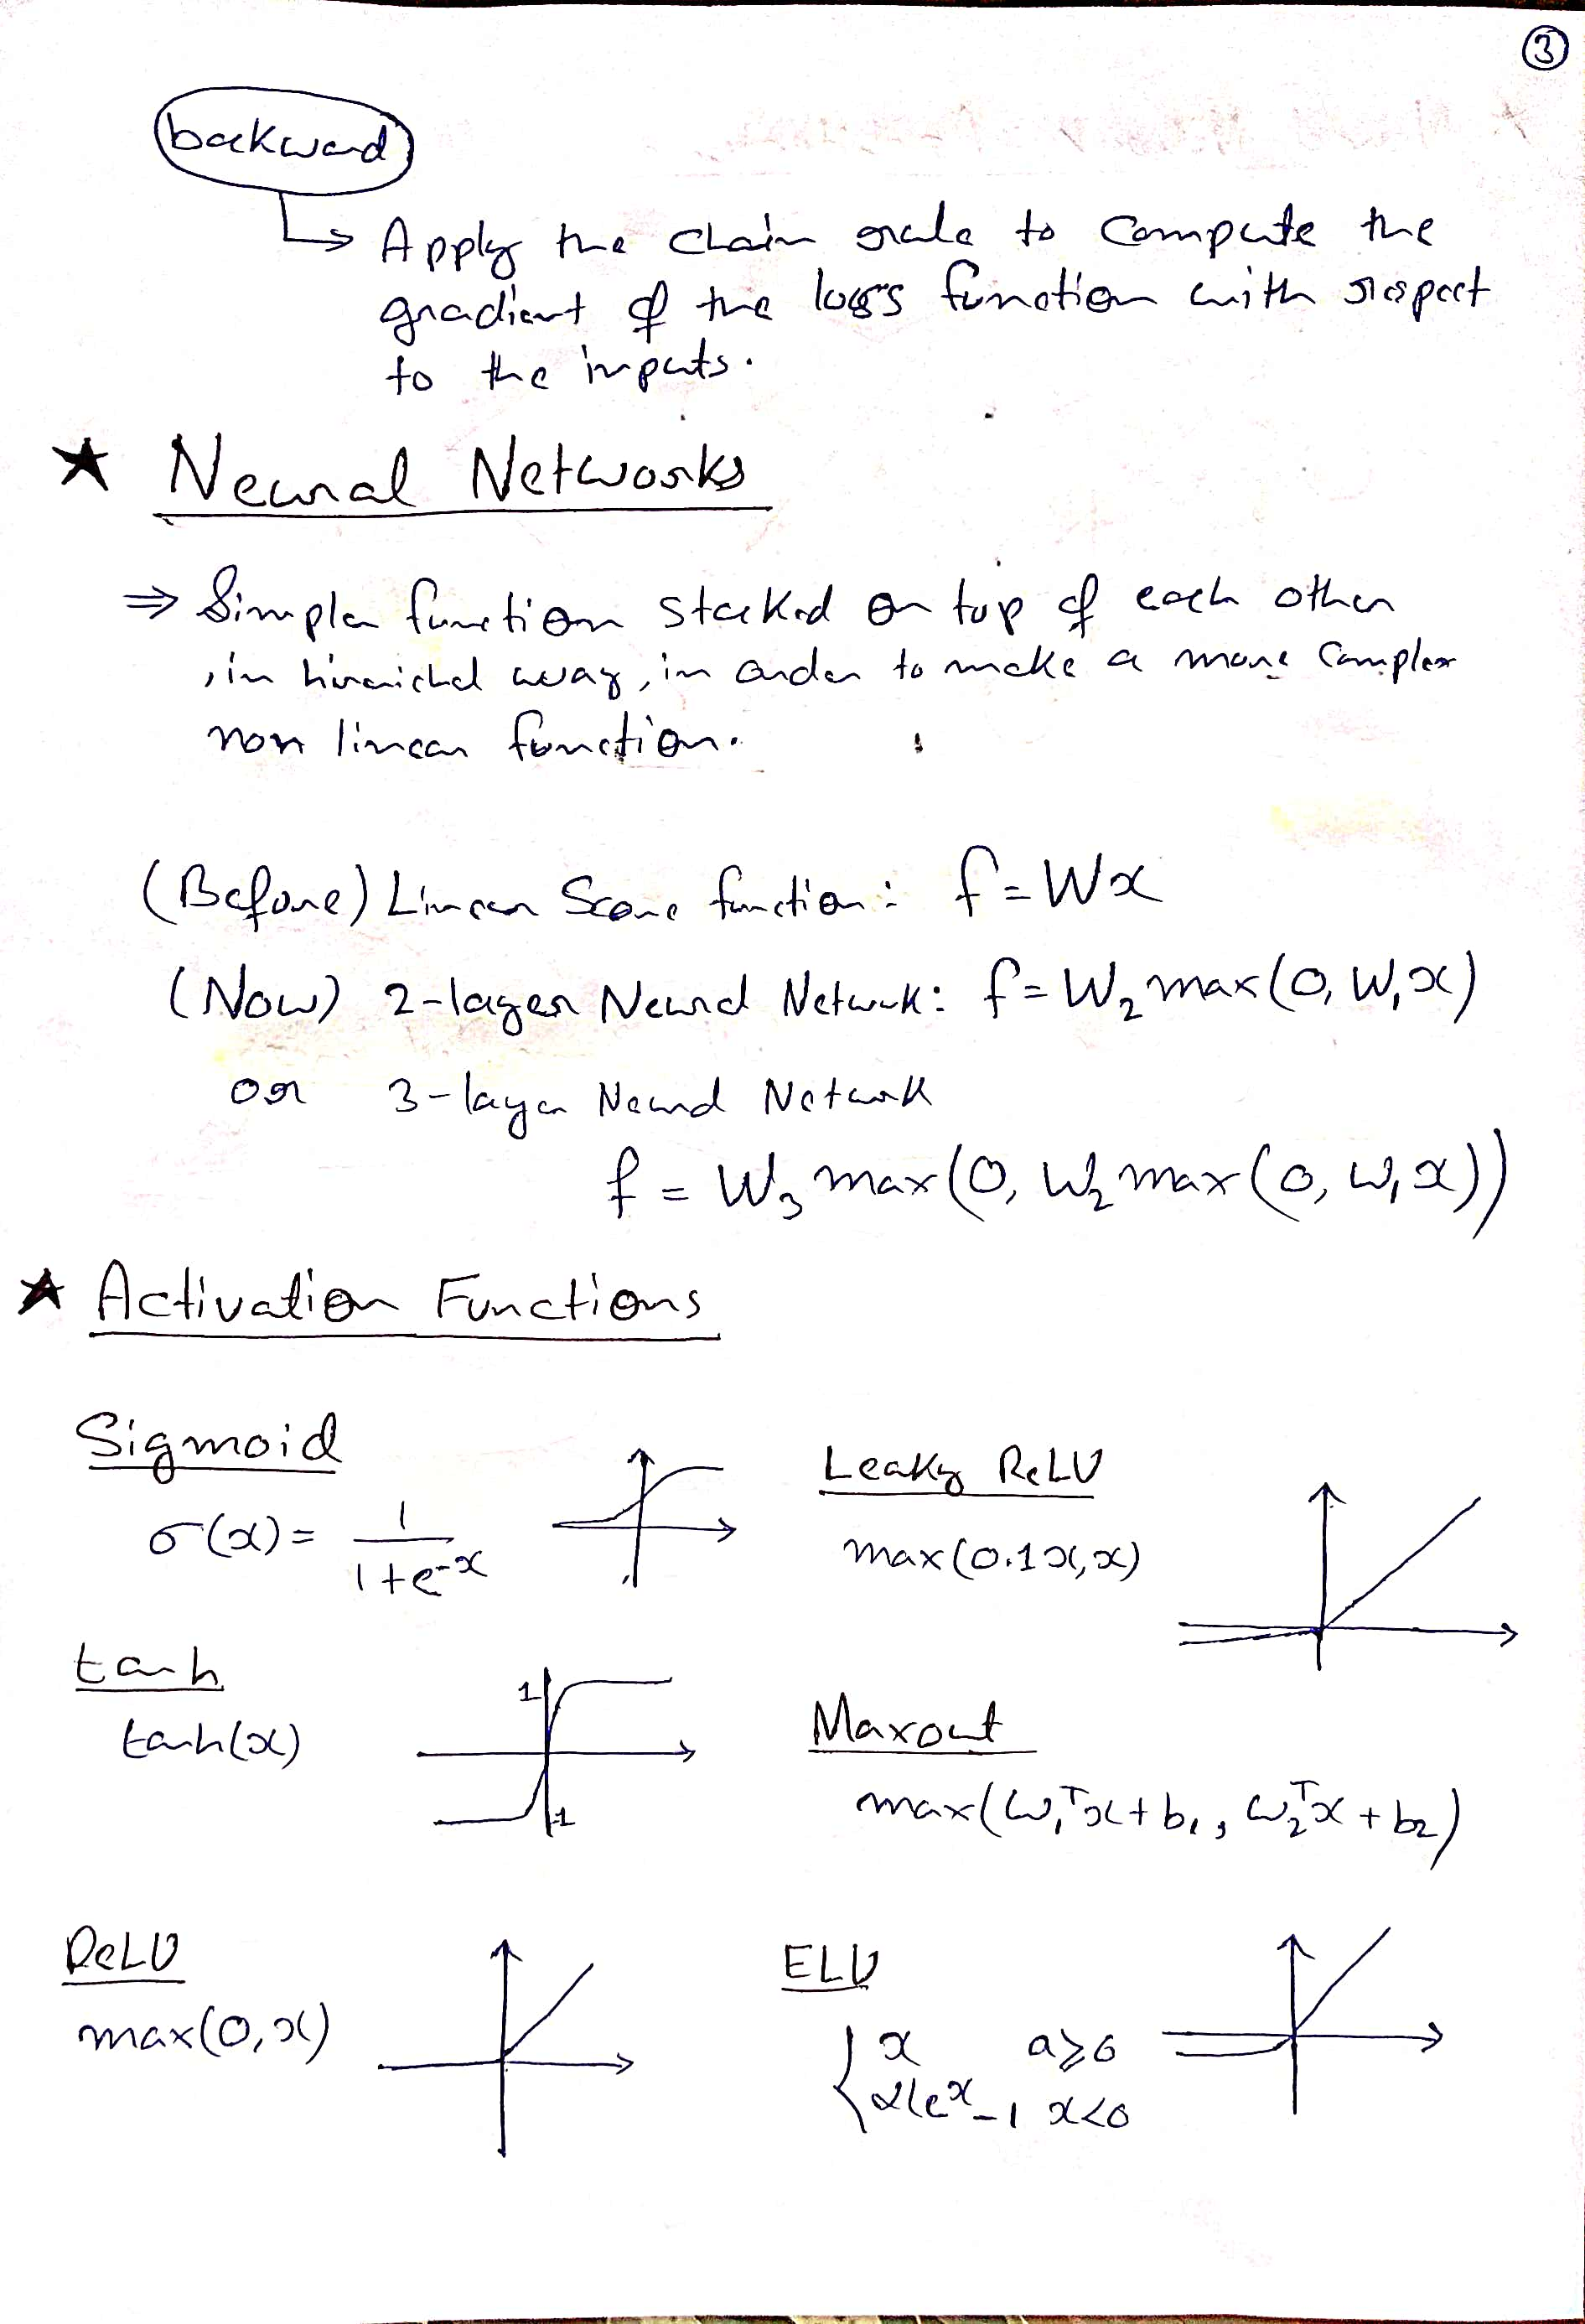 ③
backward
↳ Apply the chain rule to compute the
gradient of the loss function with respect
to the inputs.
★ Neural Networks
⇒ Simple function stacked on top of each other
, in hiraichal way, in order to make a more complex
non linear function.
(Before) Linear Score function: f = Wx
(Now) 2-layer Neural Network: f = W₂ max(0, W₁x)
or 3-layer Neural Network
f = W₃ max(0, W₂ max(0, W₁x))
★ Activation Functions
Sigmoid
σ(x) = 1/(1+e^-x)
tanh
tanh(x)
1
-1
ReLU
max(0, x)
Leaky ReLU
max(0.1x, x)
Maxout
max(w₁ᵀx + b₁, w₂ᵀx + b₂)
ELU
{ x a ≥ 0
α(e^x - 1 x < 0